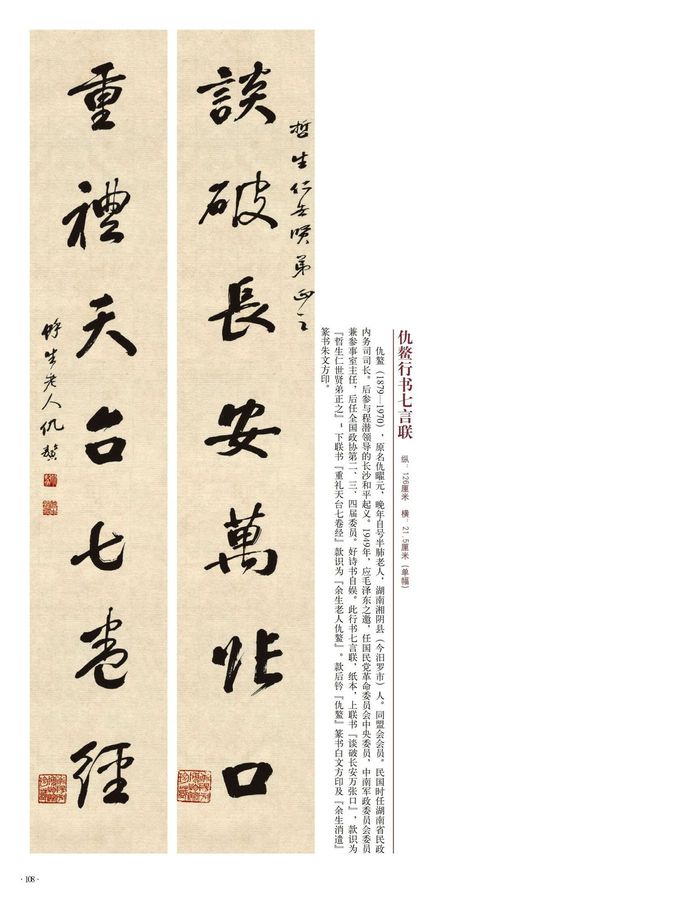 仇鳌行书七言联
纵：126厘米 横：21.5厘米（单幅）
仇鳌（1879—1970），原名仇曜元，晚年自号半肺老人，湖南湘阴县（今汨罗市）人。同盟会会员。民国时任湖南省民政
内务司司长。后参与程潜领导的长沙和平起义。1949年，应毛泽东之邀，任国民党革命委员会中央委员，中南军政委员会委员
兼参事室主任，后任全国政协第二、三、四届委员。好诗书自娱。此行书七言联，纸本，上联书『谈破长安万张口』，款识为
『哲生仁世贤弟正之』；下联书『重礼天台七卷经』款识为『余生老人仇鳌』。款后钤『仇鳌』篆书白文方印及『余生消遣』
篆书朱文方印。
哲生仁世賢弟正之
談破長安萬張口
重禮天台七卷經
馀生老人仇鰲
·108·